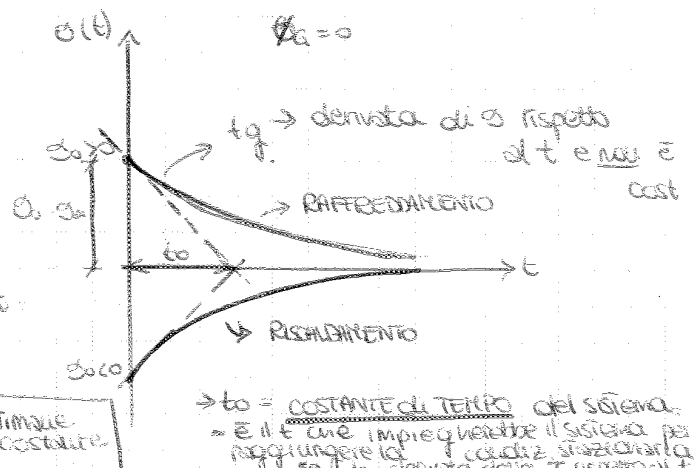 ϑ(t)
φG = 0
tg → derivata di ϑ rispetto
al t e non è
cost
ϑ0>0
→ RAFFREDDAMENTO
t0
t
→ RISCALDAMENTO
ϑ0<0
→ t0 = COSTANTE di TEMPO del sistema
= È il t che impiegherebbe il sistema per
raggiungere la condiz. stazionaria